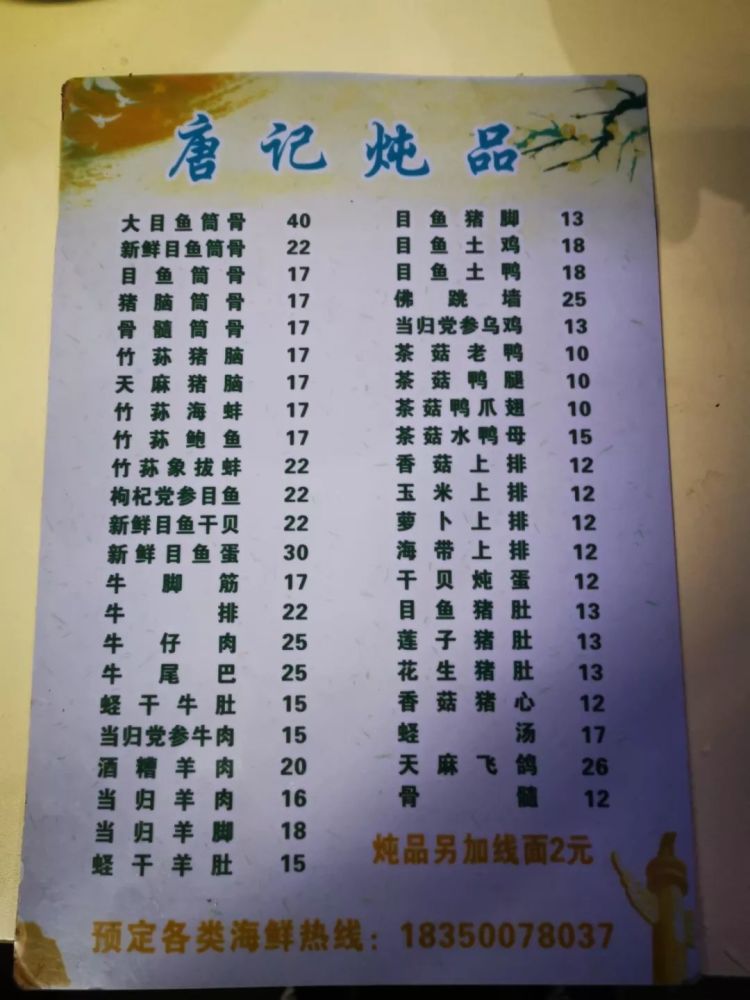 唐记炖品
大目鱼筒骨 40
新鲜目鱼筒骨 22
目鱼筒骨 17
猪脑筒骨 17
骨髓筒骨 17
竹荪猪脑 17
天麻猪脑 17
竹荪海蚌 17
竹荪鲍鱼 17
竹荪象拔蚌 22
枸杞党参目鱼 22
新鲜目鱼干贝 22
新鲜目鱼蛋 30
牛脚筋 17
牛排 22
牛仔肉 25
牛尾巴 25
蛏干牛肚 15
当归党参牛肉 15
酒糟羊肉 20
当归羊肉 16
当归羊脚 18
蛏干羊肚 15
目鱼猪脚 13
目鱼土鸡 18
目鱼土鸭 18
佛跳墙 25
当归党参乌鸡 13
茶菇老鸭 10
茶菇鸭腿 10
茶菇鸭爪翅 10
茶菇水鸭母 15
香菇上排 12
玉米上排 12
萝卜上排 12
海带上排 12
干贝炖蛋 12
目鱼猪肚 13
莲子猪肚 13
花生猪肚 13
香菇猪心 12
蛏汤 17
天麻飞鸽 26
骨髓 12
炖品另加线面2元
预定各类海鲜热线：18350078037